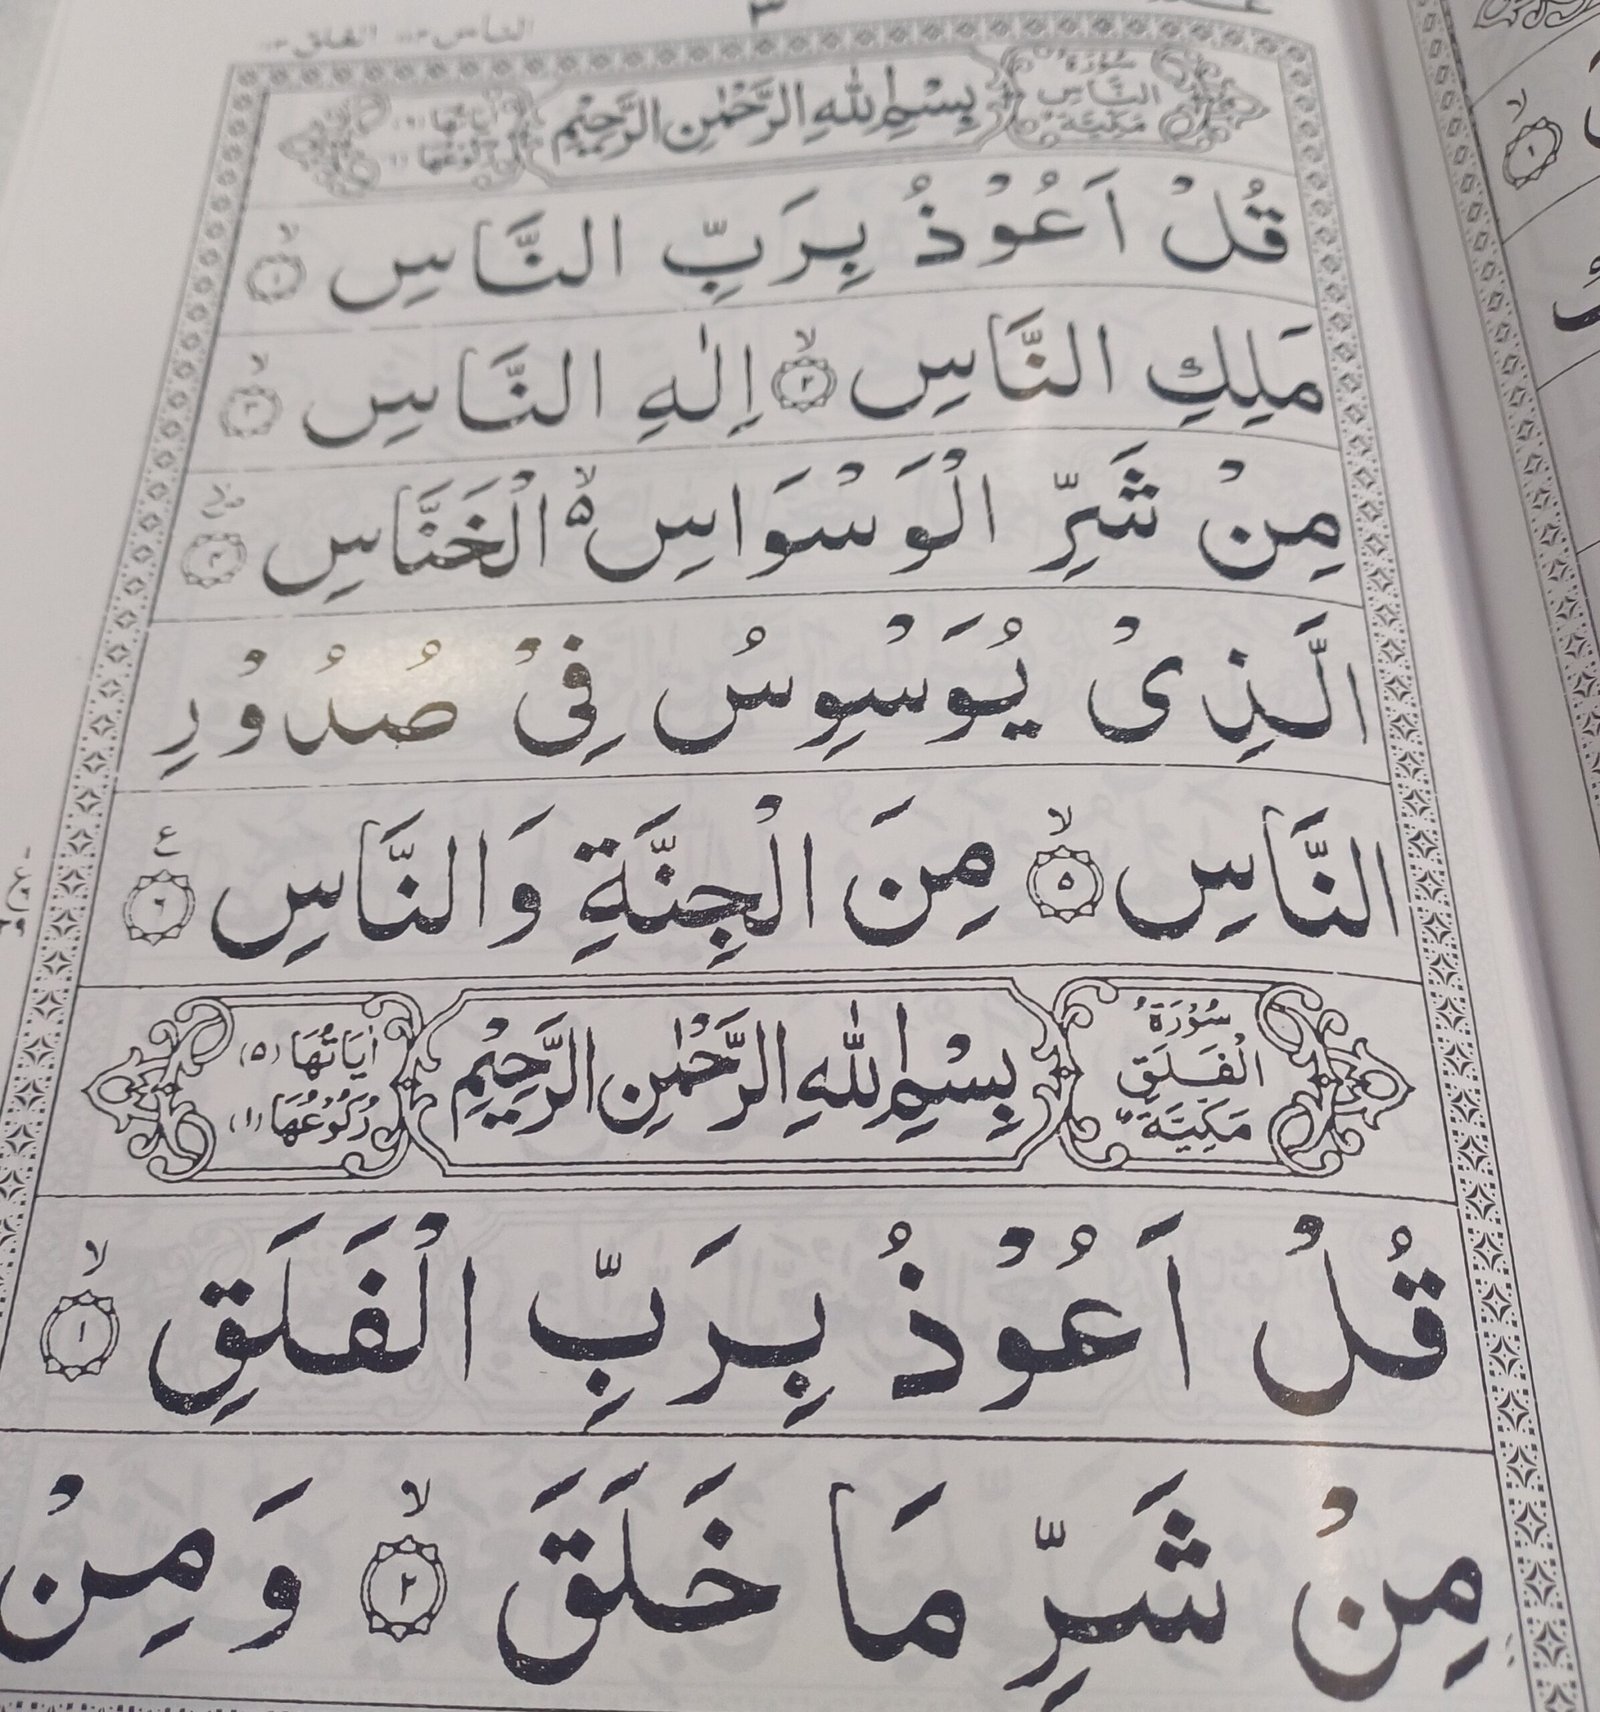 الناس ١١٤ الفلق ١١٣
٣
سُوْرَةُ النَّاسِ مَكِّيَّةٌ بِسْمِ اللّٰهِ الرَّحْمٰنِ الرَّحِيْمِ اٰيَاتُهَا (٦) رُكُوْعُهَا (١)
قُلْ اَعُوْذُ بِرَبِّ النَّاسِ ۙ‏﴿١﴾
مَلِكِ النَّاسِ ۙ‏﴿٢﴾ اِلٰهِ النَّاسِ ۙ‏﴿٣﴾
مِنْ شَرِّ الْوَسْوَاسِ ۵ۙ الْخَنَّاسِ ﴿٤﴾
الَّذِىْ يُوَسْوِسُ فِىْ صُدُوْرِ
النَّاسِ ۙ‏﴿٥﴾ مِنَ الْجِنَّةِ وَالنَّاسِ ع ﴿٦﴾
سُوْرَةُ الْفَلَقِ مَكِّيَّةٌ بِسْمِ اللّٰهِ الرَّحْمٰنِ الرَّحِيْمِ اٰيَاتُهَا (٥) رُكُوْعُهَا (١)
قُلْ اَعُوْذُ بِرَبِّ الْفَلَقِ ۙ‏﴿١﴾
مِنْ شَرِّ مَا خَلَقَ ۙ‏﴿٢﴾ وَمِنْ